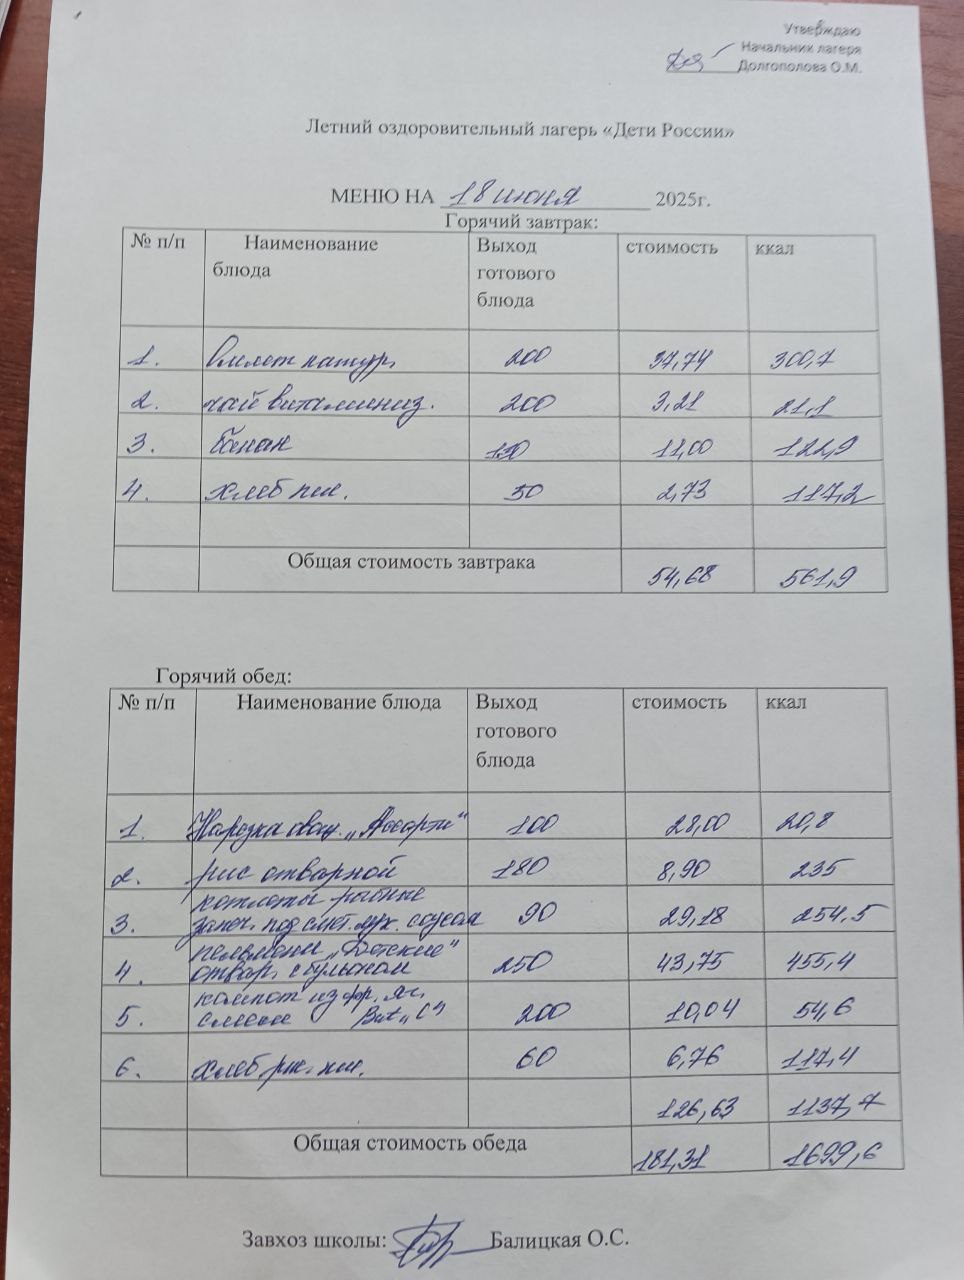 Утверждаю
Начальник лагеря
Долгополова О.М.
Летний оздоровительный лагерь «Дети России»
МЕНЮ НА 18 июня 2025г.
Горячий завтрак:
№ п/п Наименование блюда Выход готового блюда стоимость ккал
1. омлет натур. 200 37,74 300,7
2. чай витаминиз. 200 3,21 21,1
3. банан 130 11,00 122,9
4. хлеб пш. 50 2,73 117,2
Общая стоимость завтрака 54,68 561,9
Горячий обед:
№ п/п Наименование блюда Выход готового блюда стоимость ккал
1. Нарезка овощ. „Ассорти“ 100 28,00 20,8
2. рис отварной 180 8,90 235
котлеты рыбные
3. запеч. под смет. лук. соусом 90 29,18 254,5
пельмени „Детские“
4. отвар. с бульоном 250 43,75 455,4
компот из фр. яг.
5. смеси Вит „С“ 200 10,04 54,6
6. хлеб рж. пш. 60 6,76 117,4
126,63 1137,7
Общая стоимость обеда 181,31 1699,6
Завхоз школы: Балицкая О.С.